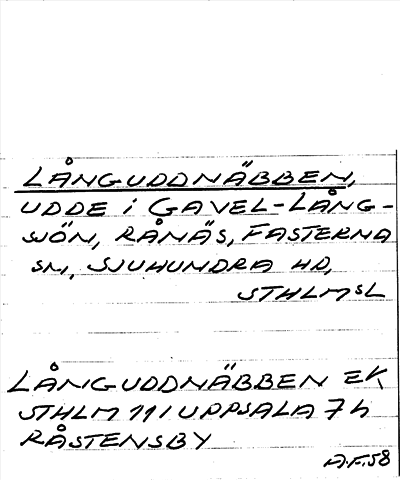 LÅNGUDDNÄBBEN,
UDDE i GAVEL-LÅNG-
SJÖN, RÅNÄS, FASTERNA
SN, SJUHUNDRA HD,
STHLMSL
LÅNGUDDNÄBBEN EK
STHLM 111 UPPSALA 7 h
RÅSTENSBY
A.F. 58